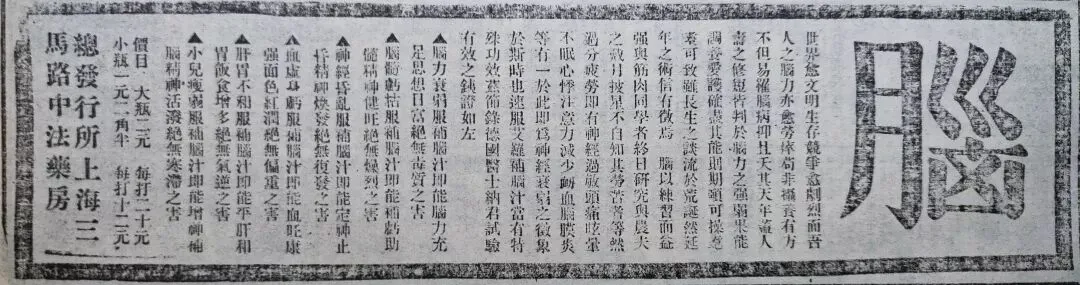 腦
世界愈文明生存競爭愈劇烈而吾
人之腦力亦愈勞瘁苟非攝養有方
不但易罹腦病抑且夭其天年蓋人
壽之修短皆判於腦力之強弱果能
調養愛護確盡其能則期頤可操左
劵可致雖長生之談流於荒誕然延
年之術信有徵焉 腦以練習而益
强與筋肉同學者終日研究與農夫
之戴月披星不自知其勞苦者等然
過分疲勞即有神經過敏頭痛眩暈
不眠心悸注意力減少衂血腦膜炎
等有一於此即爲神經衰弱之徵象
於斯時也速服艾羅補腦汁當有特
殊功效茲節錄德國醫士納君試驗
有效之鉄證如左
▲腦力衰弱服補腦汁即能腦力充
足思想日富絕無毒質之害
▲腦髓虧枯服補腦汁即能補虧助
髓精神健旺絕無燥烈之害
▲神經昏亂服補腦汁即能定神止
昏精神煥發絕無復發之害
▲血虛身虧服補腦汁即能血旺康
强面色紅潤絕無偏重之害
▲肝胃不和服補腦汁即能平肝和
胃飯食增多絕無氣逆之害
▲小兒疲弱服補腦汁即能增神補
腦精神活潑絕無寒滯之害
價目 大瓶二元 每打二十元
小瓶一元二角半 每打十二元
總發行所上海三
馬路中法藥房